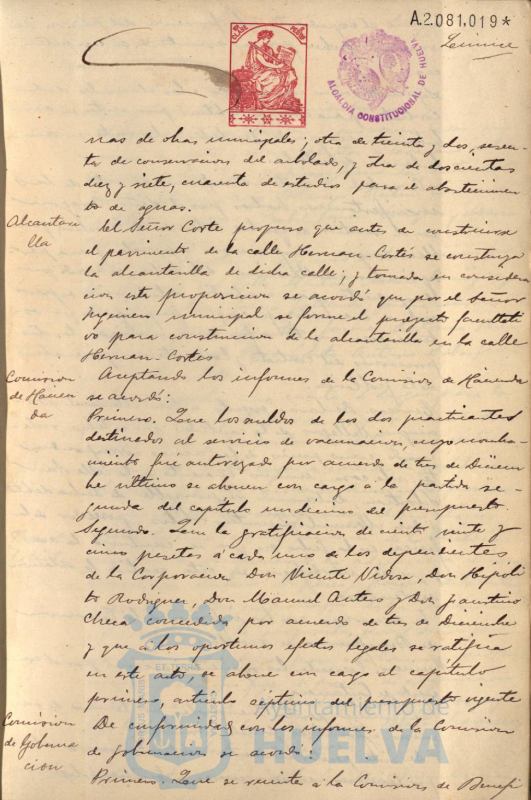 A.2.081.019*
ALCALDIA CONSTITUCIONAL DE HUELVA
nas de obras municipales; otra de treinta y dos, sesen-
ta de conservacion del arbolado, y otra de doscientas
diez y siete, cuarenta de estudios para el abastecimien-
to de aguas.
Alcantari
lla
El Señor Corte propuso que antes de construirse
el pavimento de la calle Hernan-Cortés se construya
la alcantarilla de dicha calle; y tomada en considera
cion esta proposicion se acordó que por el Señor
Ingeniero municipal se forme el proyecto facultati
vo para construccion de la alcantarilla en la calle
Hernan-Cortés
Comision
de Hacien
da
Aceptando los informes de la Comision de Hacienda
se acordó:
Primero. Que los sueldos de los dos practicantes
destinados al servicio de vacunacion, cuyo nombra-
miento fué autorizado por acuerdo de tres de Diciem
bre último se abonen con cargo á la partida se-
gunda del capítulo undécimo del presupuesto.
Segundo. Que la gratificacion de ciento veinte y
cinco pesetas á cada uno de los dependientes
de la Corporacion Don Vicente Don Hipoli
to Rodriguez, Don Manuel Antero y Don Faustino
Checa concedida por acuerdo de tres de Diciembre
y que á los oportunos efectos legales se ratifica
en este acto, se abone con cargo al capítulo
primero, artículo septimo del presupuesto vigente
Comision
de Goberna
cion
De conformidad con los informes de la Comision
de gobernacion se acordó:
Primero. Que se remita á la Comision de Benefi
Ayuntamiento de
HUELVA